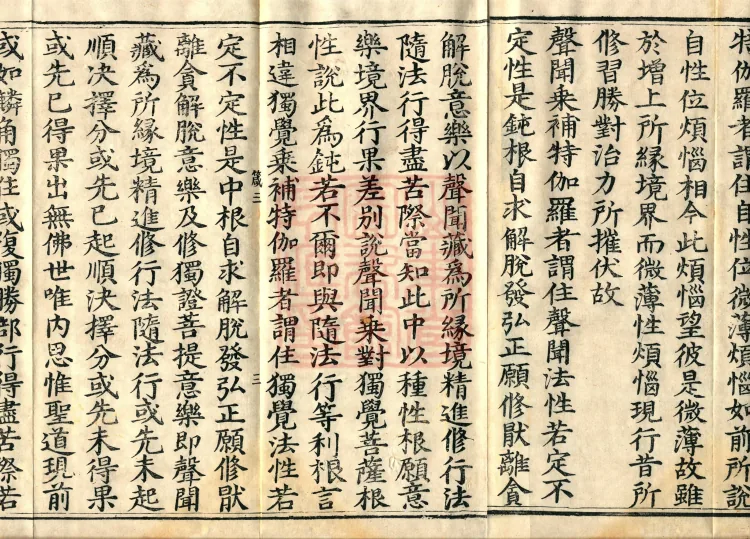 特伽羅者謂住自性位微薄煩惱如前所說
自性位煩惱相今此煩惱望彼是微薄故雖
於增上所緣境界而微薄性煩惱現行昔所
修習勝對治力所摧伏故
聲聞乘補特伽羅者謂住聲聞法性若定不
定性是鈍根自求解脫發弘正願修猒離貪
解脫意樂以聲聞藏爲所緣境精進修行法
隨法行得盡苦際當知此中以種性根願意
樂境界行果差別說聲聞乘對獨覺菩薩根
性說此爲鈍若不爾即與隨法行等利根言
相違獨覺乘補特伽羅者謂住獨覺法性若
定不定性是中根自求解脫發弘正願修猒
箴三 三
離貪解脫意樂及修獨證菩提意樂即聲聞
藏爲所緣境精進修行法隨法行或先未起
順决擇分或先已起順决擇分或先未得果
或先已得果出無佛世唯內思惟聖道現前
或如麟角獨住或復獨勝部行得盡苦際若